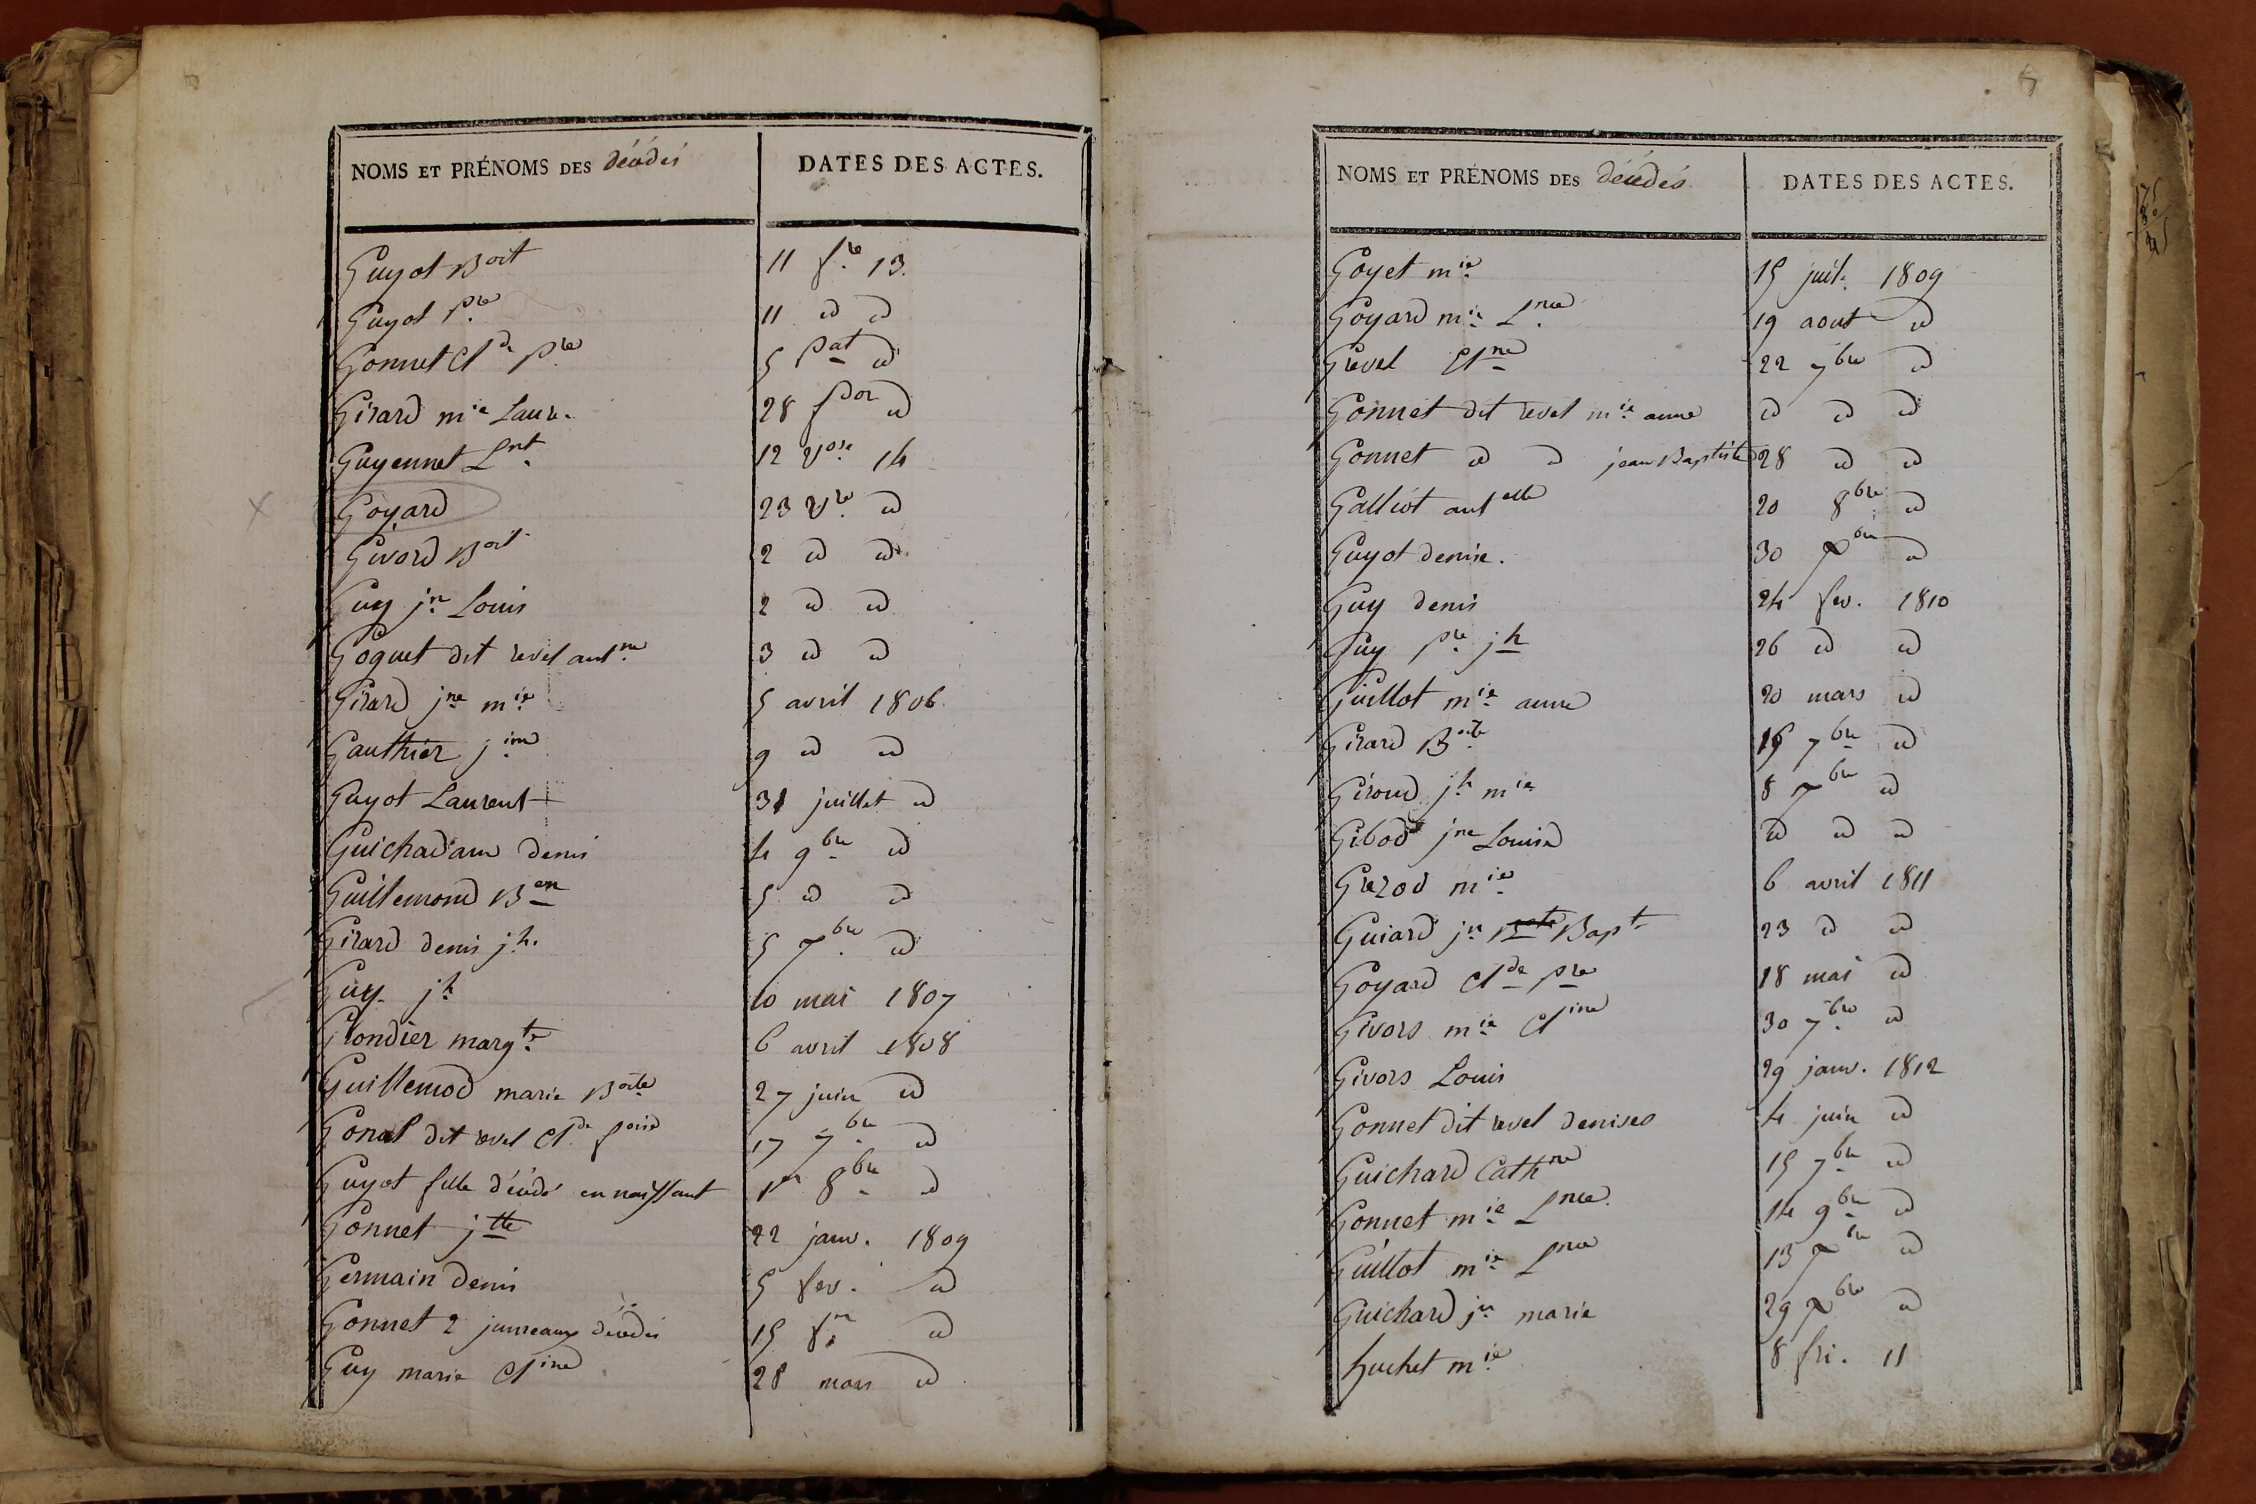 NOMS ET PRÉNOMS DES décédés DATES DES ACTES.
Guyot Boit 11 fre 13.
Guyot Pre 11 id id
Gonnet Cl.de Pre 5 Pal id
Girard mie Laur. 28 fdor id
Guyennet Lnt. 12 vose 14
Goyard 23 vre id
Givord Boit 2 id id
Guy jn Louis 2 id id
Goguet dit revel antne 3 id id
Girard jne mie 5 avril 1806
Gauthier jine 9 id id
Guyot Laurent 31 juillet id
denis 4 9bre id
Guillemond Ben 5 id id
Girard denis jh. 5 Xbre id
Guy jh 10 mai 1807
Grondier margte 6 avril 1808
Guillemod marie Boite 27 juin id
dit revel Cl.de 17 7bre id
Guyot fille décédé en naissant 1er 8bre id
Gonnet jtte 22 janv. 1809
Germain denis 5 fev. id
Gonnet 2 jumeaux décédés 15 id
Guy marie Cline 28 mars id
NOMS ET PRÉNOMS DES décédés DATES DES ACTES.
Goyet mie 15 juil. 1809
Goyard mie Lnce 19 aout id
Grevel Clne 22 7bre id
Gonnet dit revel mie anne id id id
Gonnet id id jean Baptiste 28 id id
Galliot antelle 20 8bre id
Guyot denise. 30 Xbre id
Guy denis 24 fev. 1810
Guy Pre jh 26 id id
Guillot mie anne 20 mars id
Girard Boite 7bre id
Giroud jh mie 8 Xbre id
Gibod jne Louise id id id
Grezod mie 6 avril 1811
Guiard jn Bapt 23 id id
Goyard Clde Pre 18 mai id
Givors mie Cline 30 7bre id
Givors Louis 29 janv. 1812
Gonnet dit revel denises 4 juin id
Guichard Cathne 15 7bre id
Gonnet mie Lnce. 14 9bre id
Guillot mie Lnce 13 Xbre id
Guichard jn marie 29 Xbre id
huchet mie 8 fri. 11